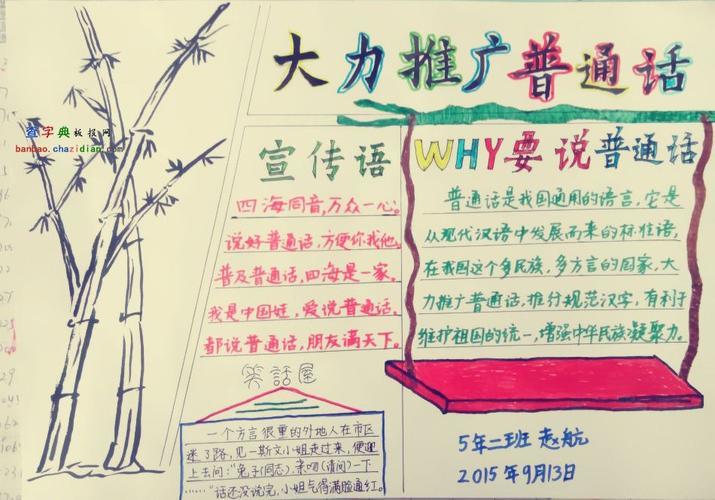 大力推广普通话
查字典板报网
banbao.chazidian.com
宣传语
四海同音,万众一心。
说好普通话,方便你我他。
普及普通话,四海是一家。
我是中国娃,爱说普通话。
都说普通话,朋友满天下。
WHY要说普通话
普通话是我国通用的语言,它是
从现代汉语中发展而来的标准语,
在我国这个多民族,多方言的国家,大
力推广普通话,推行规范汉字,有利于
维护祖国的统一,增强中华民族凝聚力。
笑話屋
一个方言很重的外地人在市区
迷了路,见一斯文小姐走过来,便迎
上去问:“兔子(同志),亲吻(请问)一下
……”话还没说完,小姐气得满脸通红。
5年二班 赵航
2015年9月13日